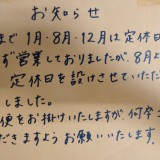 お知らせ
まで 1月・8月・12月は定休日
ず営業しておりましたが、8月よ
定休日を設けさせていただ
しました。
便をお掛けいたしますが何卒ご
だきますようお願いいたします。